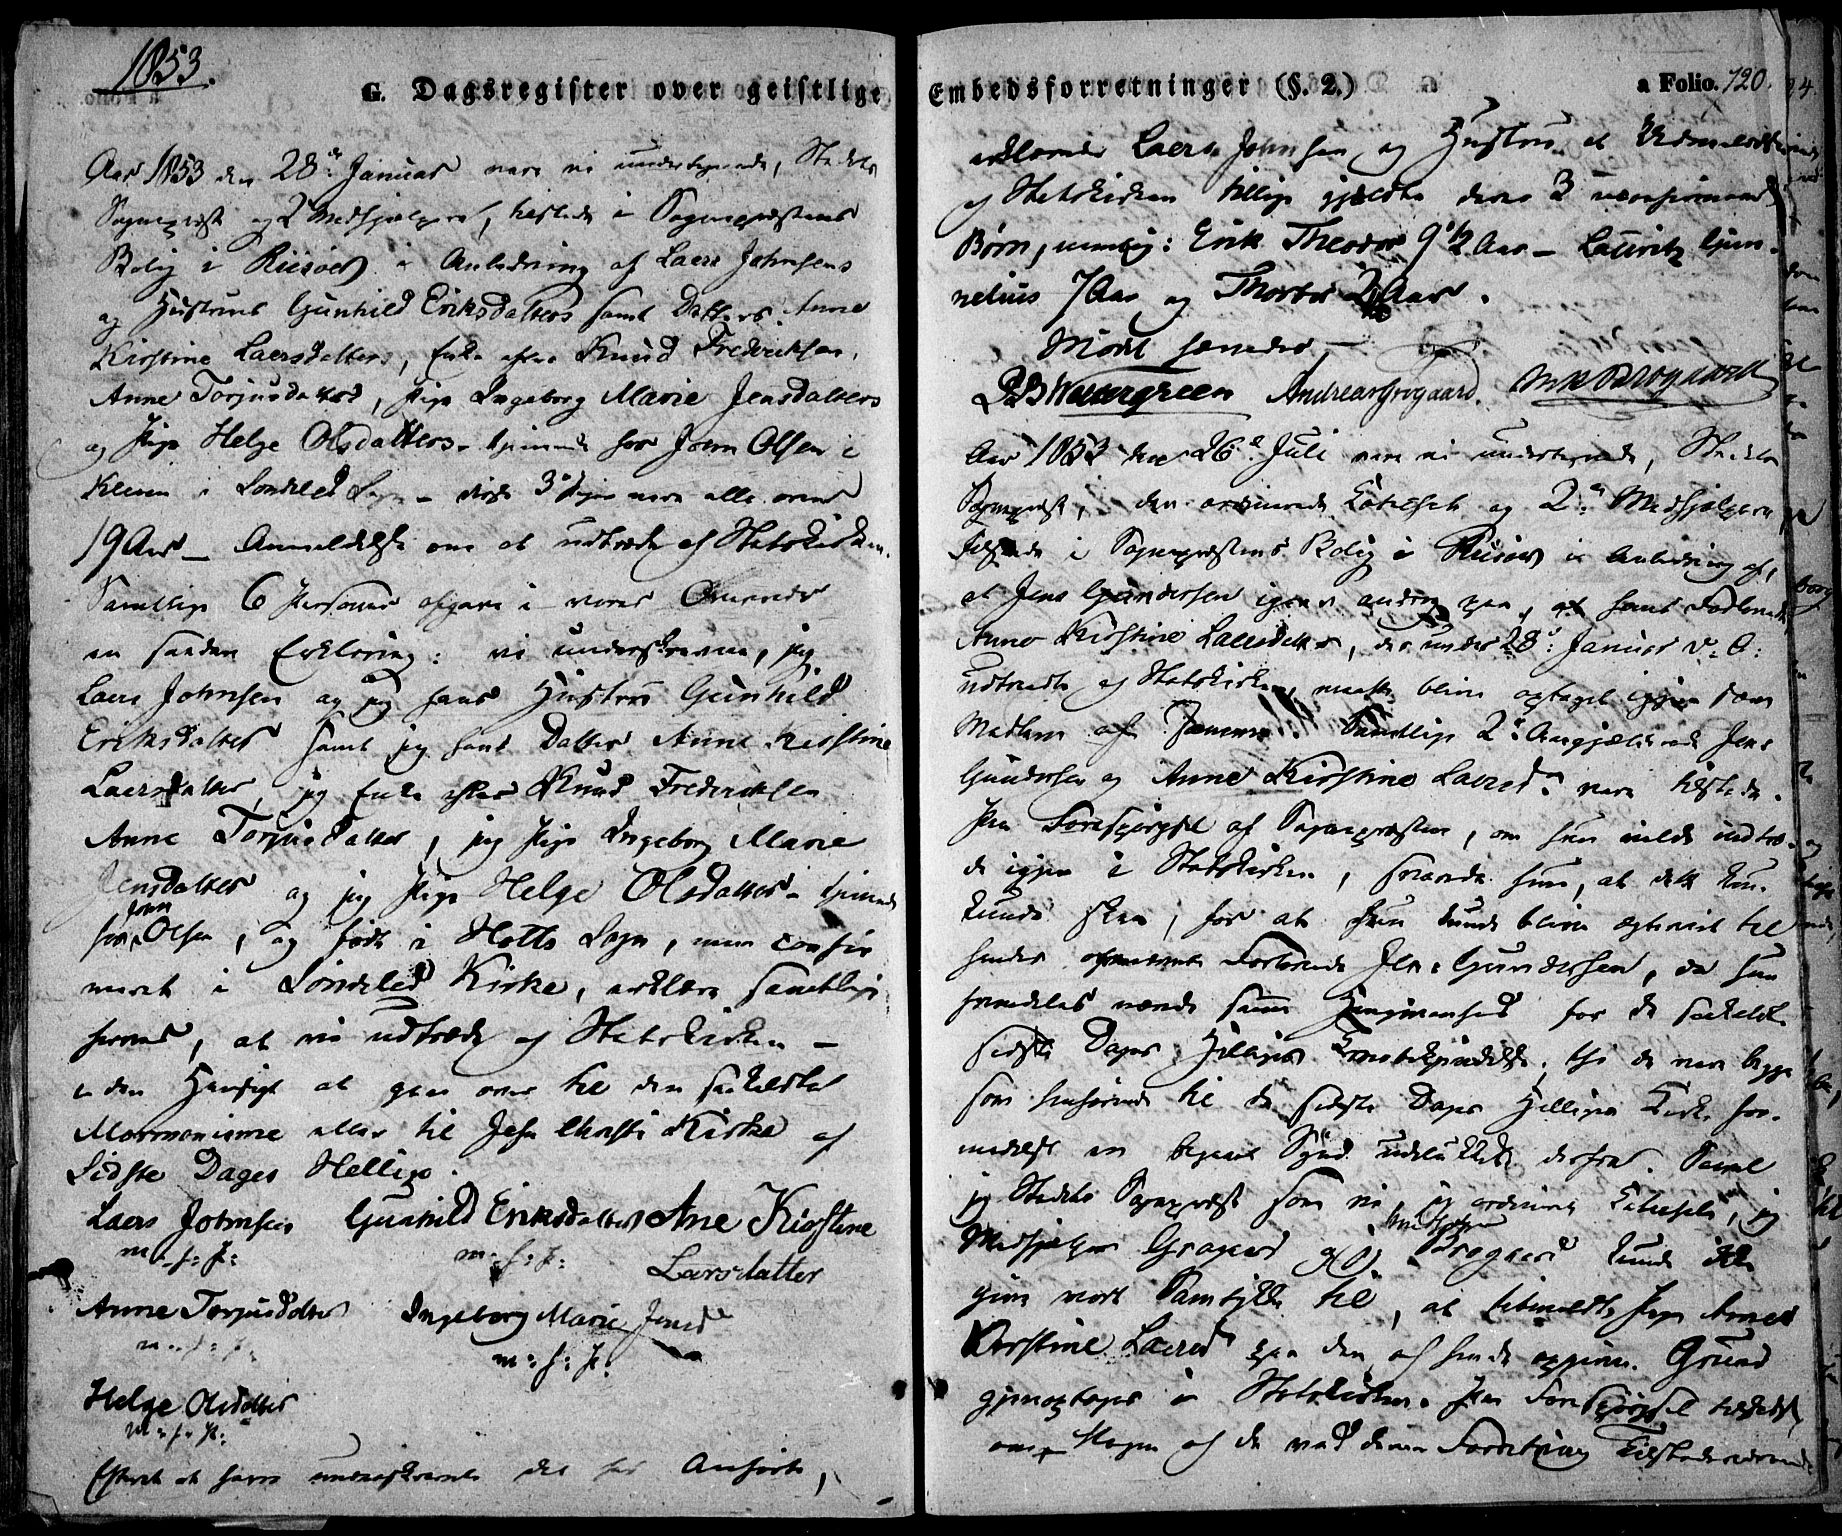 1853.
G. Dagsregister over geistlige
Aar 1853 den 28de Januar vare vi undertegnede, Stedets
Sognepræst og 2 Medhjælpere, tilstede i Sognepræstens
Bolig i Riisøer i Anledning af Laers Johnsens
og Hustrues Gunhild Eriksdatters samt Datters Anne
Kirstine Laersdatters, Enke efter Knud Frederiksen,
Anne Torjusdatters, Pige Ingeborg Marie Jensdatters
og Pige Helge Olsdatters - tjenende hos John Olsen i
i Søndeled Sogn - disse 3de Piger vare alle over
19 Aar - Anmeldelse om at udtræde af Statskirken.
Samtlige 6 Personer afgave i vores Overvær
en saadan Erklæring: vi underskrevne, jeg
Laers Johnsen og jeg hans Hustrue Gunhild
Eriksdatter samt jeg hans Datter Anne Kirstine
Laersdatter, jeg Enke efter Knud Frederiksen
Anne Torjusdatter, jeg Pige Ingeborg Marie
Jensdatter og jeg Pige Helge Olsdatter - tjenende
hos John Olsen, og født i Holts Sogn, men confir
meret i Søndeled Kirke, erklære samtlige
herved, at vi udtræde af Statskirken -
i den Hensigt at gaae over til den saakaldte
Mormonisme eller til Jesu Christi Kirke af
Sidste Dages Hellige.
Laers Johnsen Gunhild Eriksdatter Ane Kirstine
m. f: P: m. f: P: Larsdatter
Anne Torjusdatter Ingeborg Marie Jensd
m. f: P: m: f: P:
Helge Olsdatter
m. f. P:
Efterat at have underskrevet det her Anførte,
Embedsforretninger (§. 2.)
a Folio. 120.
erklærede Laers Johnsen og Hustru, at Udmeldelsen
af Statskirken tillige gjældte deres 3 uconfirmerede
Børn, nemlig: Erik Theodor 9 1/2 Aar - Lauritz Gun-
nelius 7 Aar og Thorbør 2 Aar.
Mødet hævedes
Andreas Grogaard. Brogaard
Aar 1853 den 26de Juli vare vi undertegnede, Stedets
Sognepræst, den ordinerede Catechet og 2de Medhjælpere
tilstede i Sognepræstens Bolig i Riisøer i Anledning af,
at Jens Gundersen igjen androg paa, at hans Forlovede
Anne Kirstine Laersdatter, der under 28de Januar d. A:
udtraadte af Statskirken, maatte blive optaget igjen som
Medlem af samme. Samtlige 2de Angjældende Jens
Gundersen og Anne Kirstine Laersd: vare tilstede.
Paa Forespørgsel af Sognepræsten, om hun vilde indtræ-
de igjen i Statskirken, svarede hun, at dette kun
kunde skee, for at hun kunde blive ægteviet til
hendes Forlovede Jens Gundersen, da hun
fremdeles nærede samme Hengivenhed for de saakaldte
sidste Dages Helliges Troesbekjendelse, thi de vare begge
som henhørende til de sidste Dages Helliges Kirke for-
medelst en begaaet Synd udelukkede derfra. Saavel
jeg Stedets Sognepræst som vi, jeg ordineret Catechet, jeg
Medhjælper Grogaard og Medhjelper Brogaard kunde ikke
give vort Samtykke til, at bemeldte Pige Anne
Kirstine Laersd paa den af hende opgivne Grund
gjenoptages i Statskirken. Paa Forespørgsel
om Nogen af de ved denne Forretning Tilstedeværende